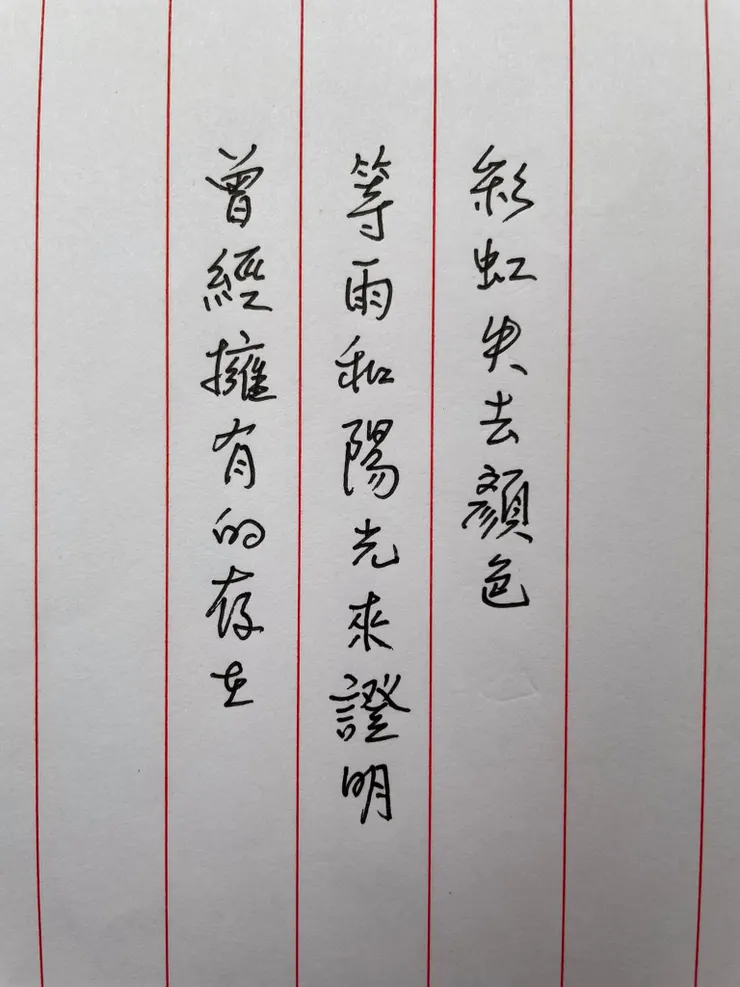 彩虹失去顏色
等雨和陽光來證明
曾經擁有的存在